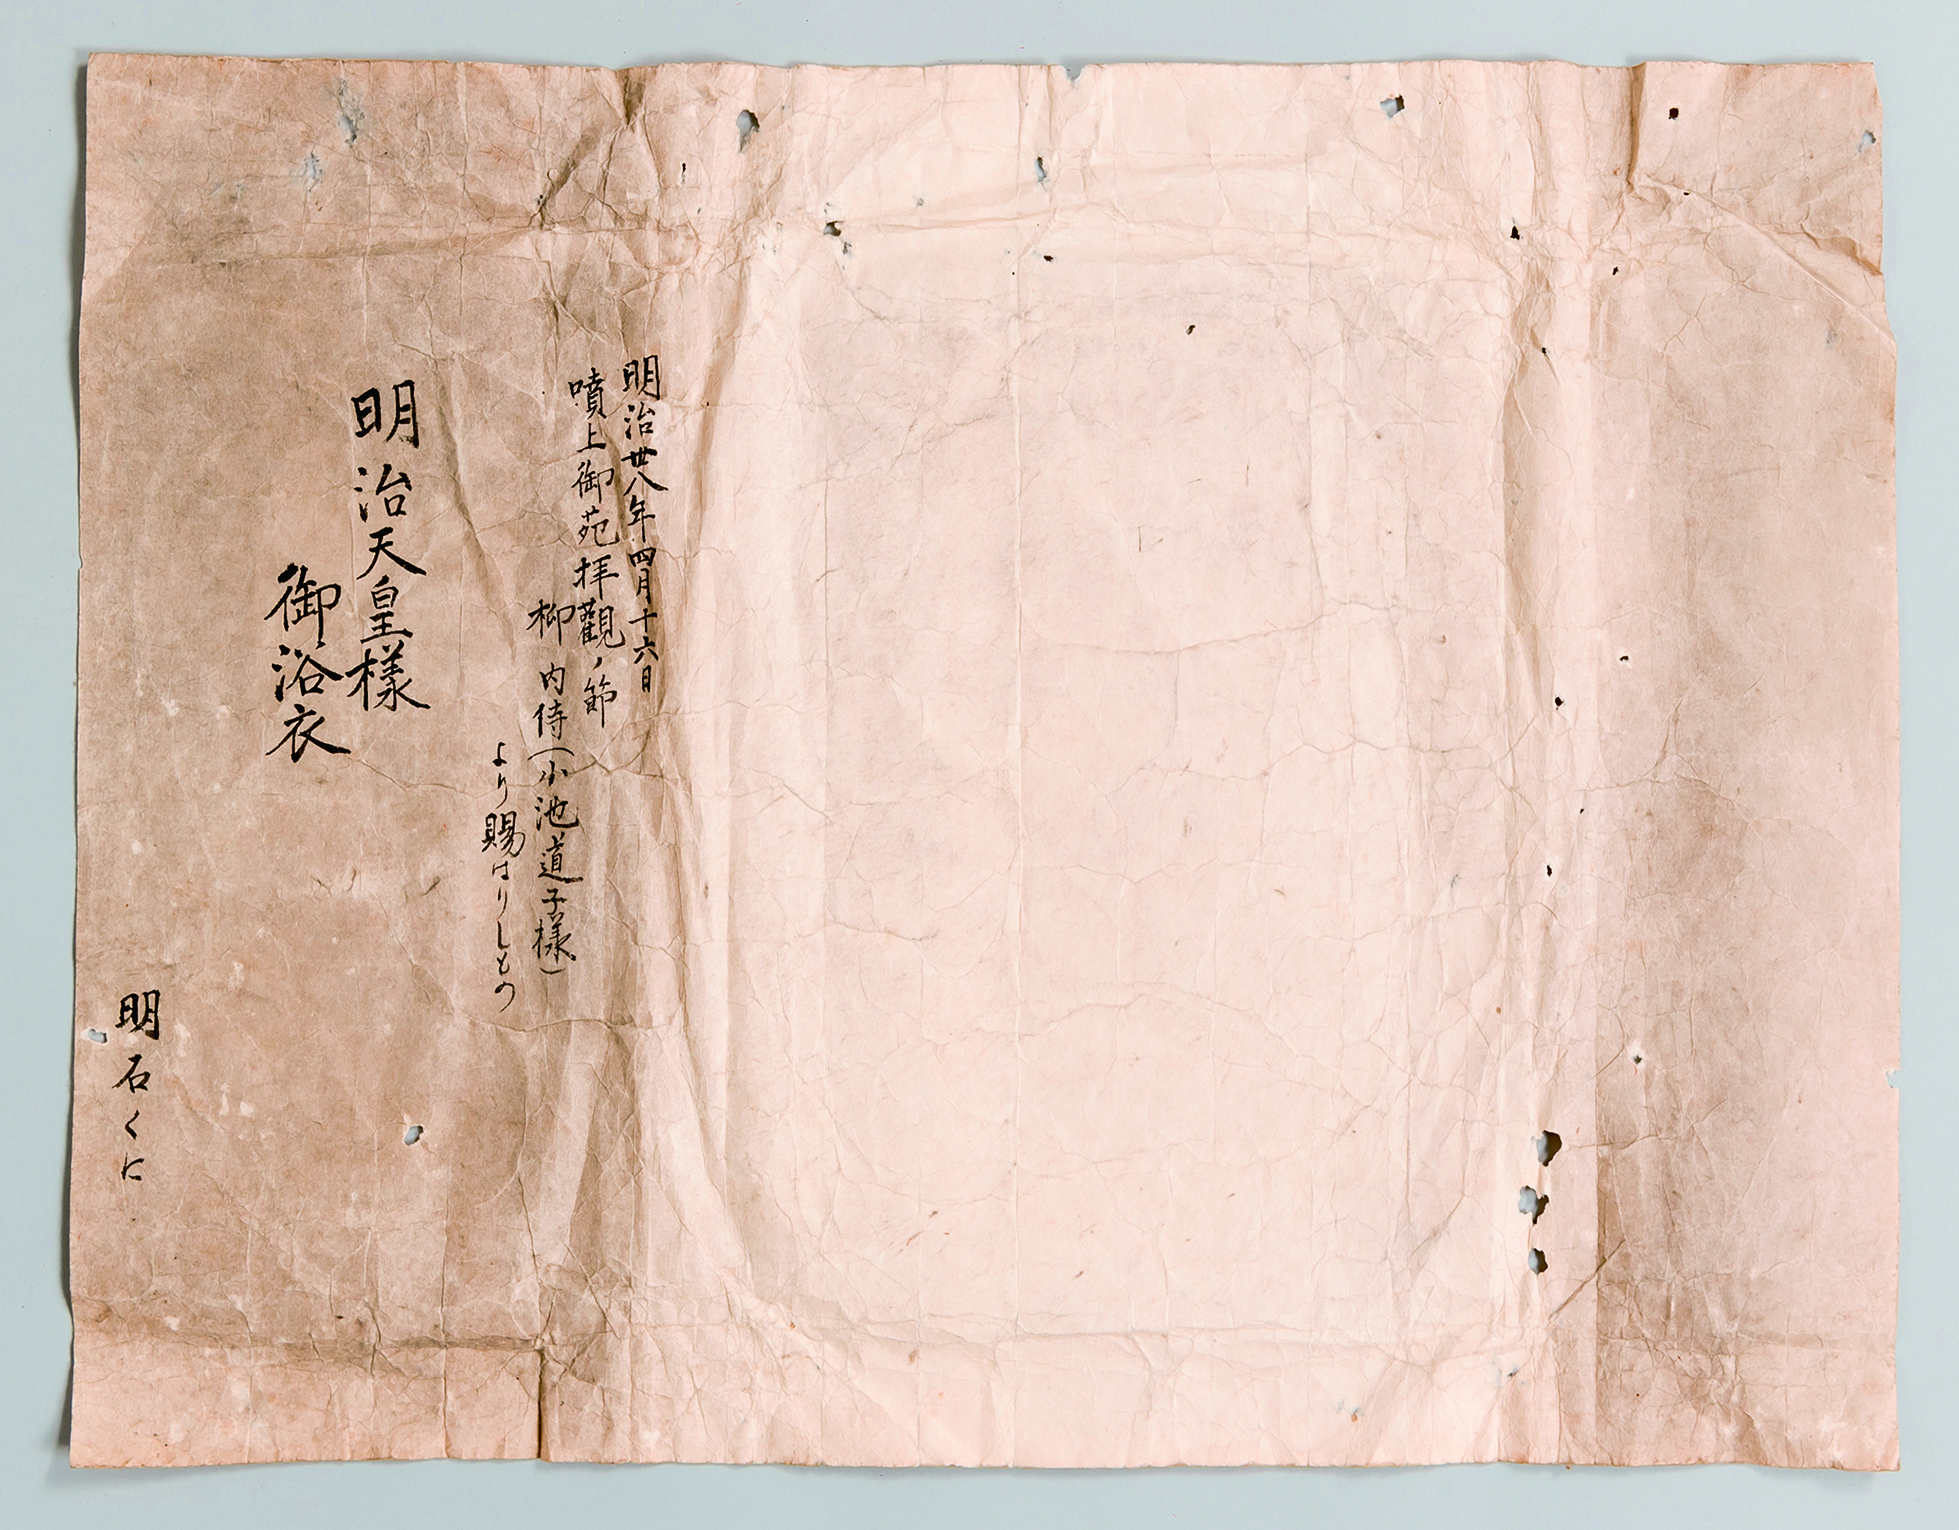 明治卅八年四月十六日
噴上御苑拝觀ノ節
柳内侍（小池道子様）
より賜はりしもの
明治天皇様
御浴衣
明石くに